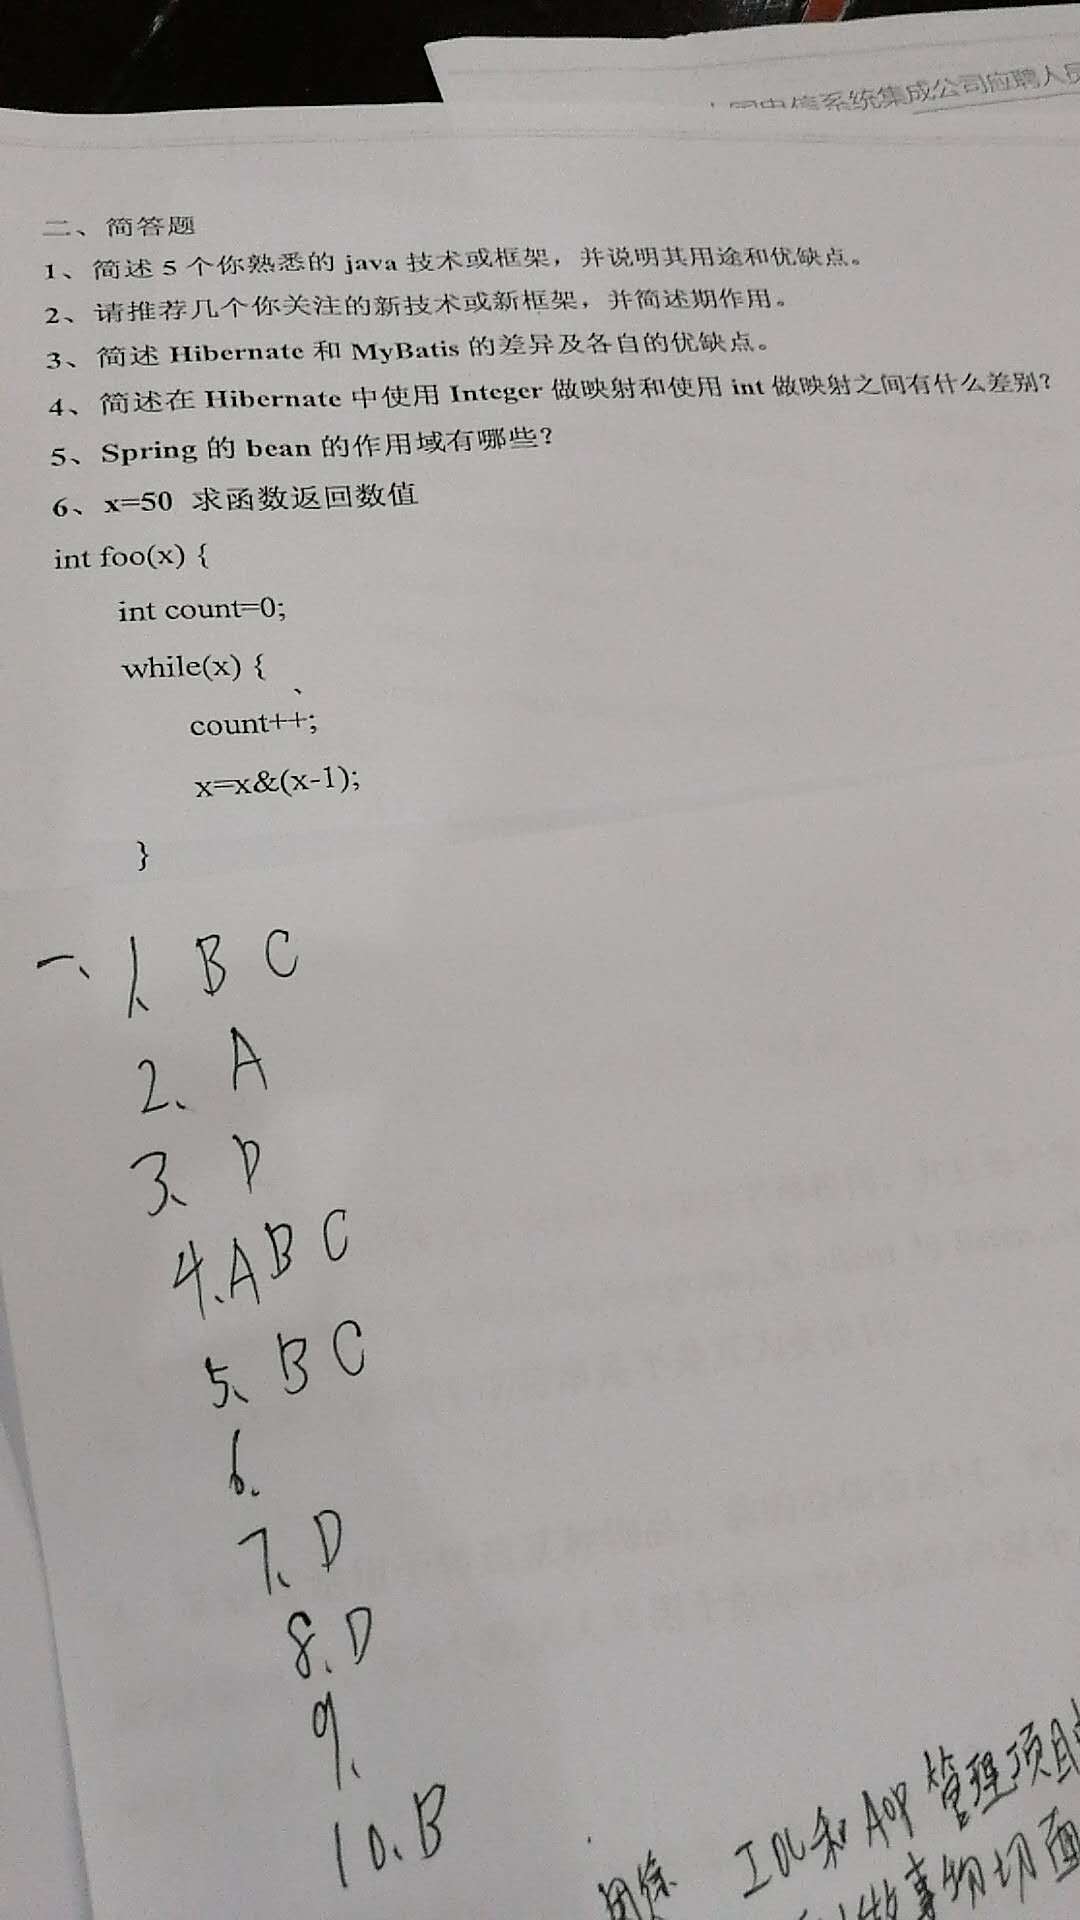 系统集成公司应聘人员
二、简答题
1、简述 5 个你熟悉的 java 技术或框架，并说明其用途和优缺点。
2、请推荐几个你关注的新技术或新框架，并简述期作用。
3、简述 Hibernate 和 MyBatis 的差异及各自的优缺点。
4、简述在 Hibernate 中使用 Integer 做映射和使用 int 做映射之间有什么差别？
5、Spring 的 bean 的作用域有哪些？
6、x=50 求函数返回数值
int foo(x) {
int count=0;
while(x) {
count++;
x=x&(x-1);
}
一、1、B C
2、A
3、D
4、A B C
5、B C
6.
7、D
8、D
9、
10、B
用途 IOC和AOP管理项目
做事物切面